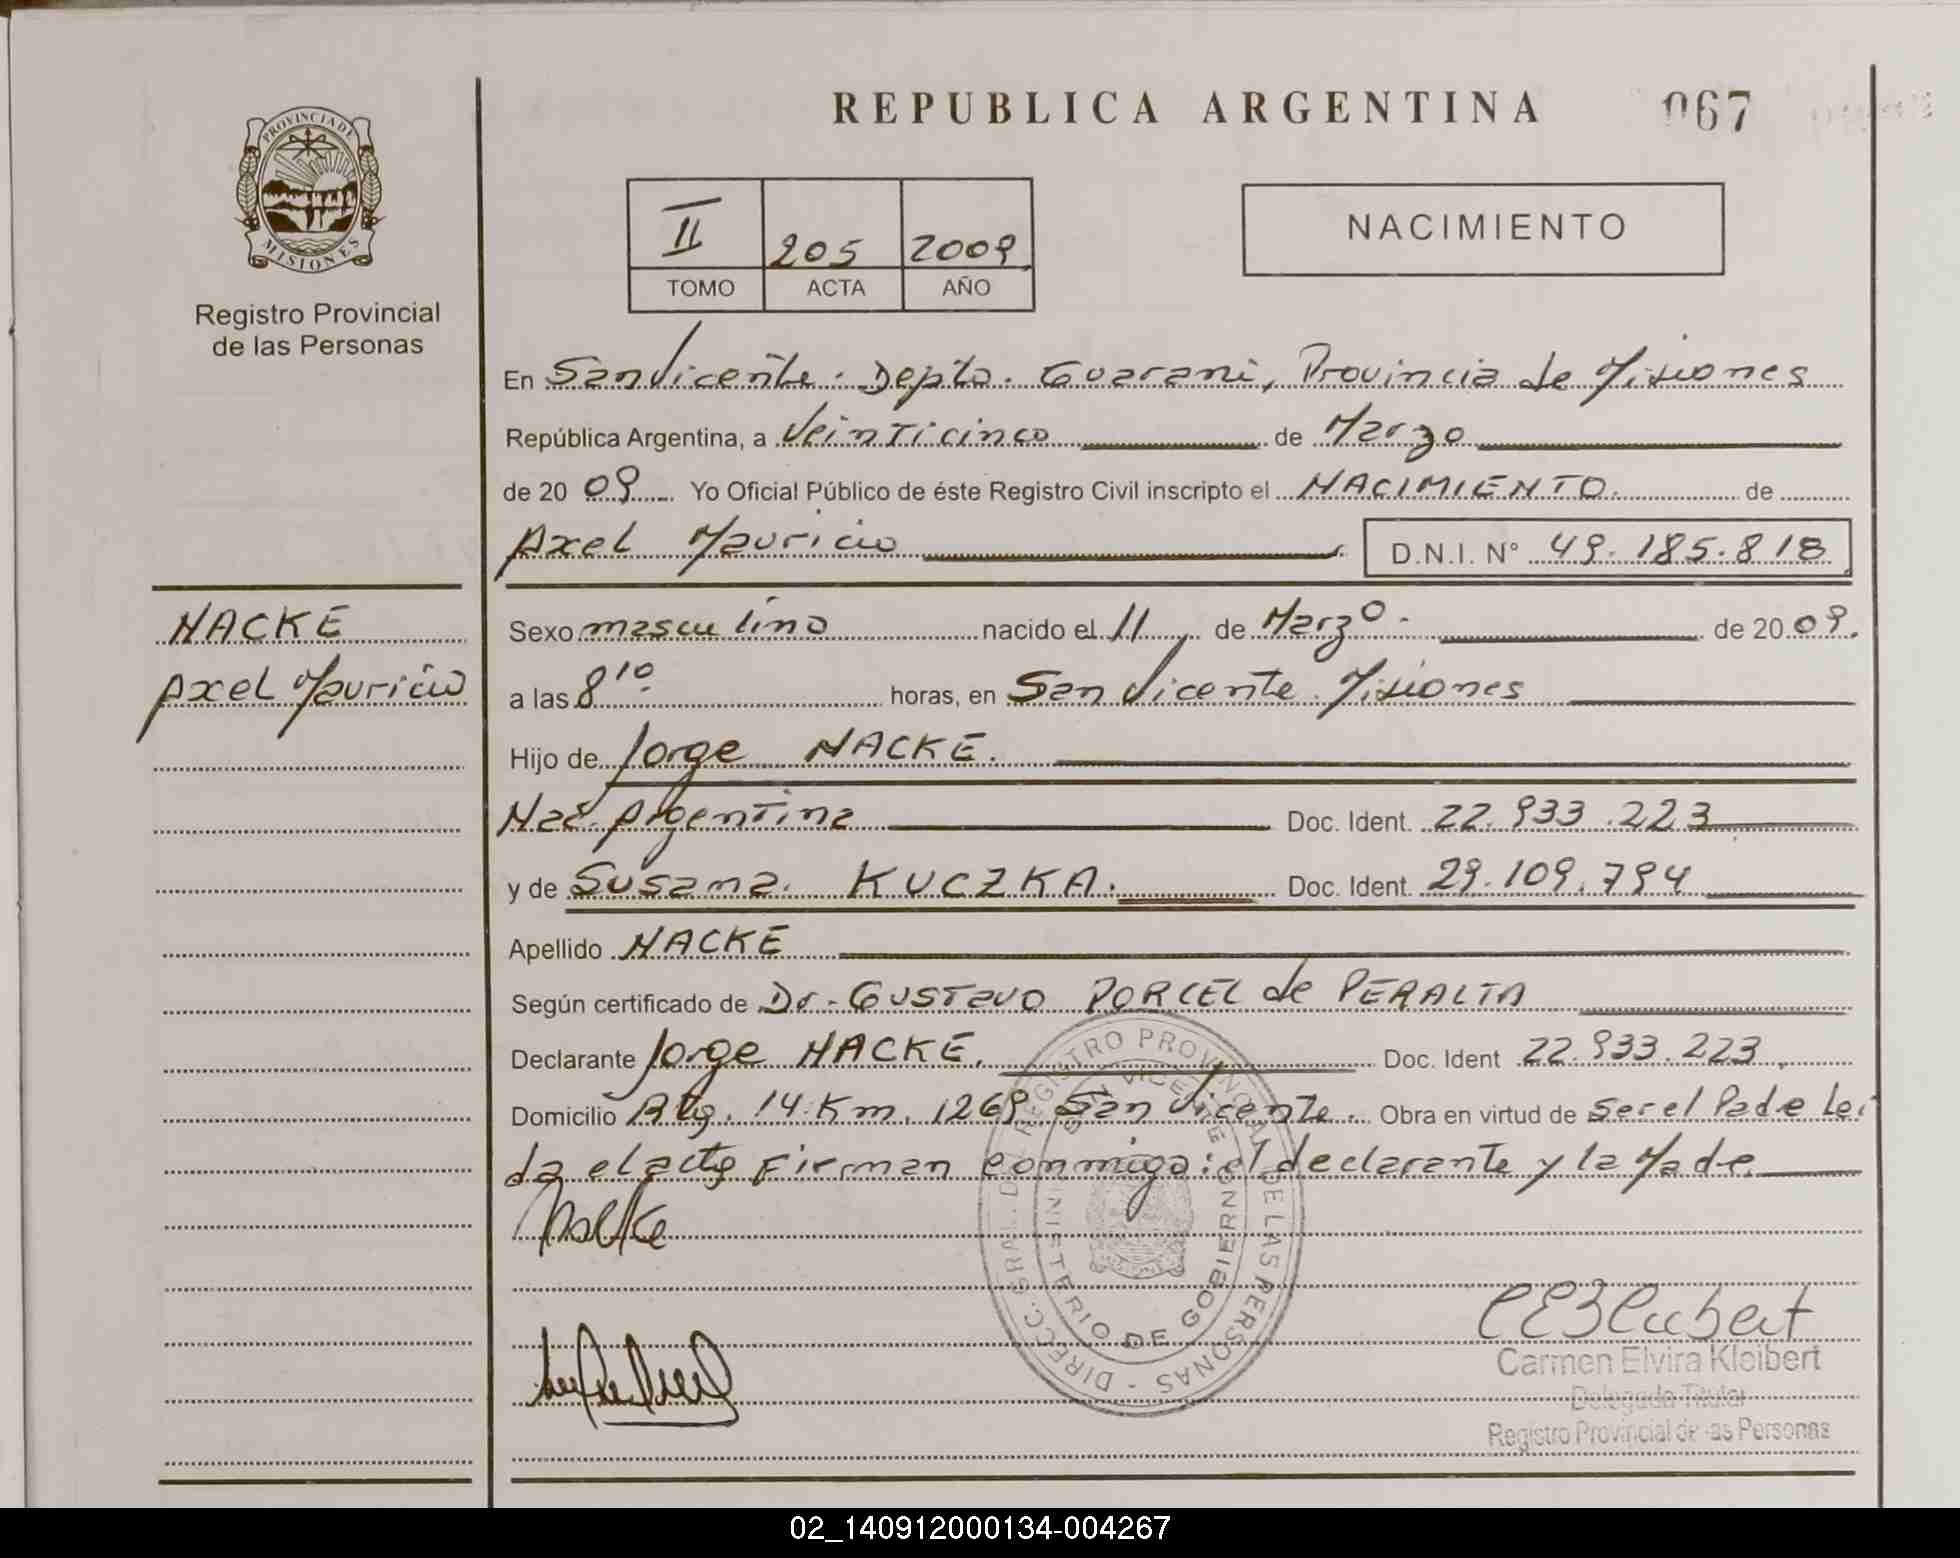 REPUBLICA ARGENTINA 067
PROVINCIA DE
MISIONES
Registro Provincial
de las Personas
II 205 2009
TOMO ACTA AÑO
NACIMIENTO
En San Vicente. Depto. Guarani, Provincia de Misiones
República Argentina, a Veinticinco de Marzo
de 20 09 Yo Oficial Público de éste Registro Civil inscripto el NACIMIENTO. de
Axel Mauricio D.N.I. N° 49.185.818
NACKE
Axel Mauricio
Sexo masculino nacido el 11 de Marzo. de 20 09.
a las 8 10 horas, en San Vicente. Misiones
Hijo de Jorge NACKE.
Nac. Argentina Doc. Ident. 22.933.223
y de Susana. KUCZKA. Doc. Ident. 29.109.794
Apellido NACKE
Según certificado de Dr. Gustavo PORCEL de PERALTA
Declarante Jorge NACKE. Doc. Ident 22.933.223.
Domicilio Rta. 14. Km. 1269 San Vicente. Obra en virtud de ser el Padre Lei
da el acta Firman conmigo: el declarante y la Madre.
Nacke
DIRECC. GRAL. DEL REGISTRO PROVINCIAL DE LAS PERSONAS -
SAN VICENTE
MINISTERIO DE GOBIERNO
Carmen Elvira Kleibert
Delegada Titular
Registro Provincial de las Personas
02_140912000134-004267